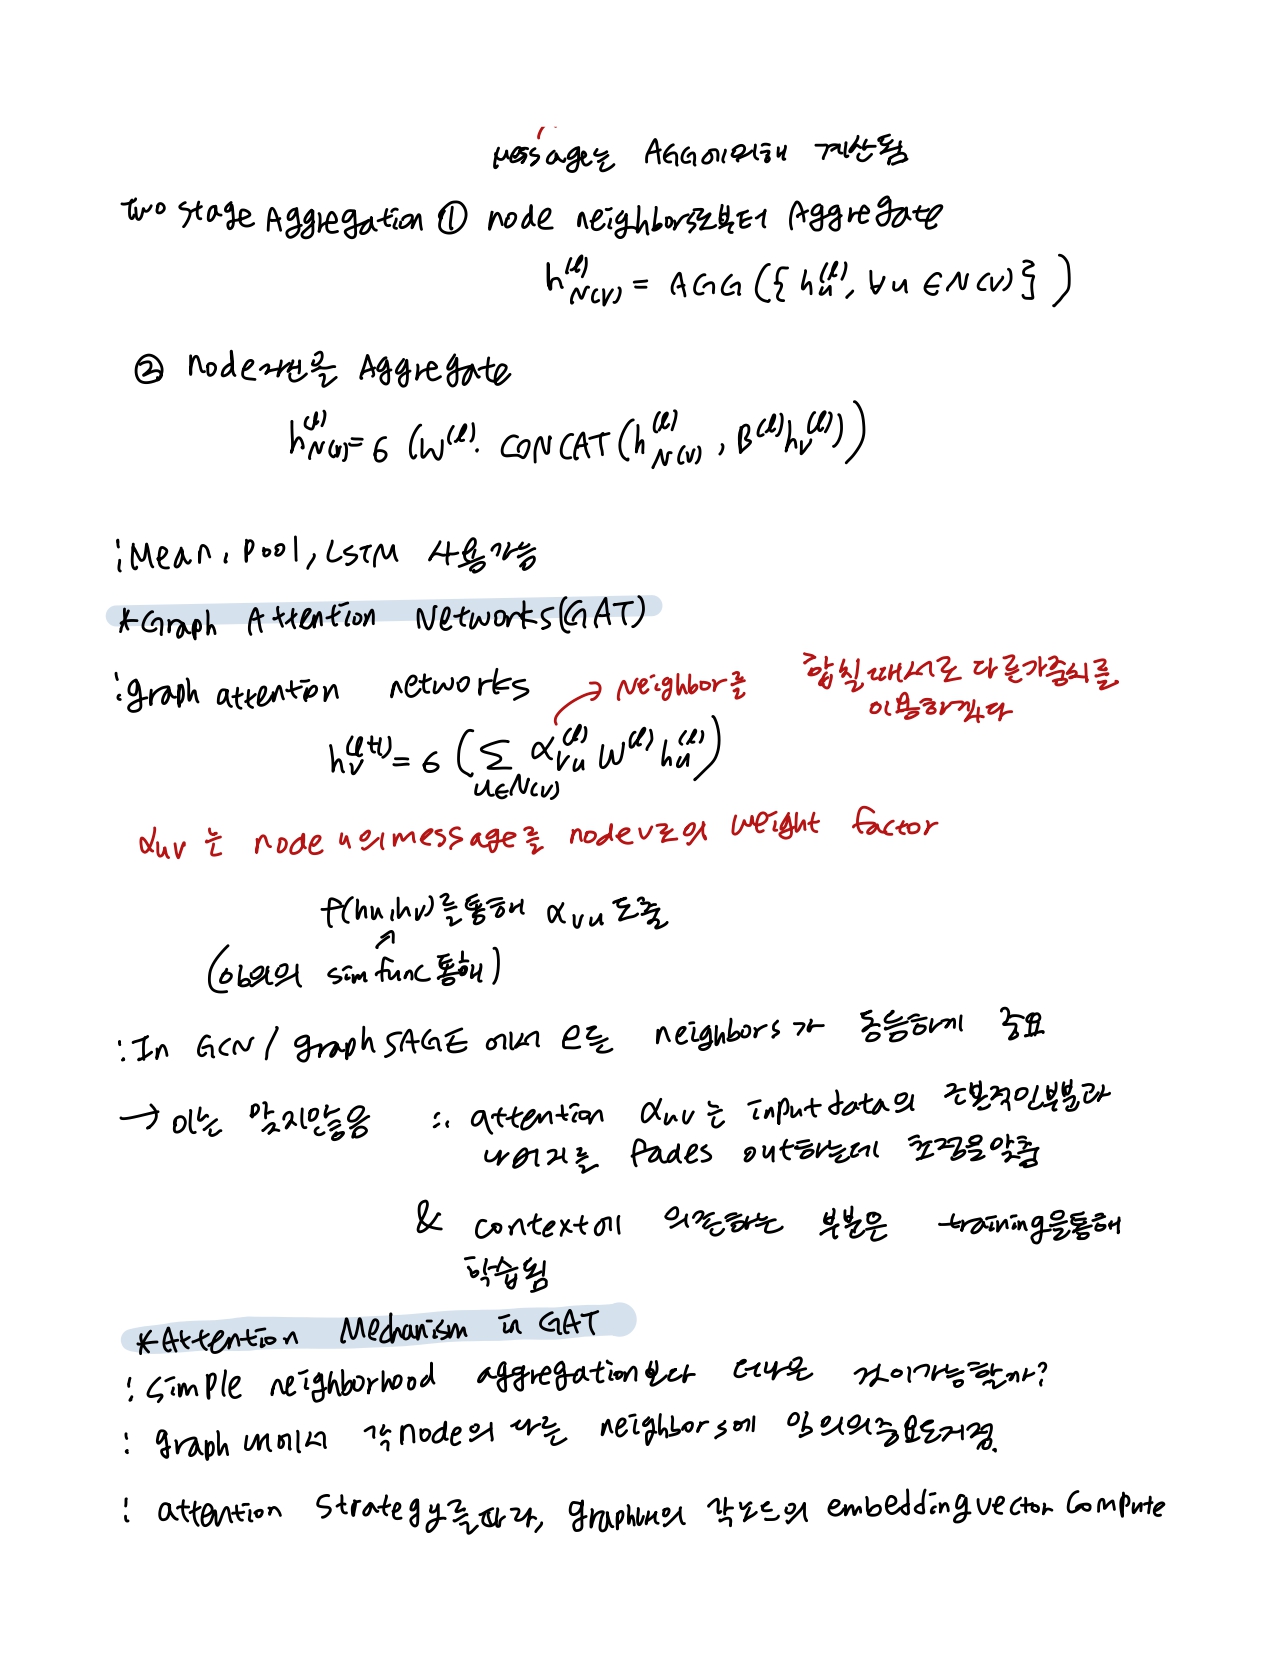 message는 AGG에의해 계산됨
two stage Aggregation ① node neighbors로부터 Aggregate
h_{N(v)}^{(l)} = AGG ({ h_u^{(l)}, ∀u ∈ N(v) } )
② node자신을 Aggregate
h_{N(v)}^{(l)} = 6 (W^{(l)}· CONCAT(h_{N(v)}^{(l)}, B^{(l)}h_v^{(l)}))
: Mean, Pool, LSTM 사용가능
*Graph Attention Networks(GAT)
: graph attention networks
→ Neighbor를 합칠때서로 다른가중치를
이용하겠다
h_v^{(l+1)} = 6 (∑_{u∈N(v)} α_{vu}^{(l)} W^{(l)} h_u^{(l)})
α_{uv} 는 node u의message를 node v로의 weight factor
f(hu, hv)를통해 α_{vu} 도출
(임의의 sim func통해)
: In GCN / graph SAGE 에서 모든 neighbors가 동등하게 중요
→ 이는 맞지않음 ∴ attention α_{uv}는 input data의 근본적인부분과
나머지를 fades out하는데 초점을맞춤
& context에 의존하는 부분은 training을통해
학습됨
*Attention Mechanism in GAT
: simple neighborhood aggregation보다 더나은 것이가능할까?
: graph 내에서 각node의 다른 neighbors에 임의의중요도지정.
: attention strategy를따라, graph내의 각노드의 embedding vector compute